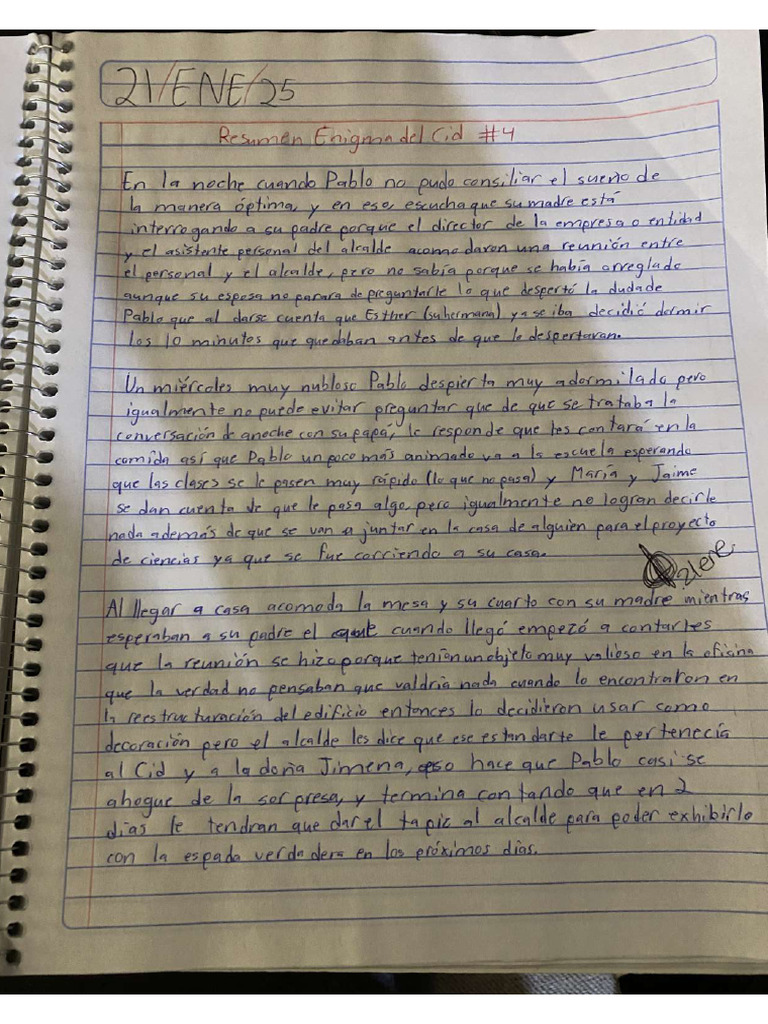 21/ENE/25
Resumen Enigma del Cid #4
En la noche cuando Pablo no pudo consiliar el sueño de
la manera óptima, y en eso, escucha que su madre está
interrogando a su padre porque el director de la empresa o entidad
y el asistente personal del alcalde acomodaron una reunión entre
el personal y el alcalde, pero no sabía porque se había arreglado
aunque su esposa no parara de preguntarle lo que despertó la duda de
Pablo que al darse cuenta que Esther (su hermana) ya se iba decidió dormir
los 10 minutos que quedaban antes de que le despertaran.
Un miércoles muy nubloso Pablo despierta muy adormilado pero
igualmente no puede evitar preguntar que de que se trataba la
conversación de anoche con su papá, le responde que les contará en la
comida así que Pablo un poco más animado va a la escuela esperando
que las clases se le pasen muy rápido (lo que no pasa) y María y Jaime
se dan cuenta de que le pasa algo, pero igualmente no logran decirle
nada además de que se van a juntar en la casa de alguien para el proyecto
de ciencias ya que se fue corriendo a su casa.
21ene.
Al llegar a casa acomoda la mesa y su cuarto con su madre mientras
esperaban a su padre el cuando llegó empezó a contarles
que la reunión se hizo porque tenían un objeto muy valioso en la oficina
que la verdad no pensaban que valdría nada cuando lo encontraron en
la reestructuración del edificio entonces lo decidieron usar como
decoración pero el alcalde les dice que ese estandarte le pertenecía
al Cid y a la doña Jimena, eso hace que Pablo casi se
ahogue de la sorpresa, y termina contando que en 2
días le tendran que dar el tapiz al alcalde para poder exhibirlo
con la espada verdadera en los próximos días.